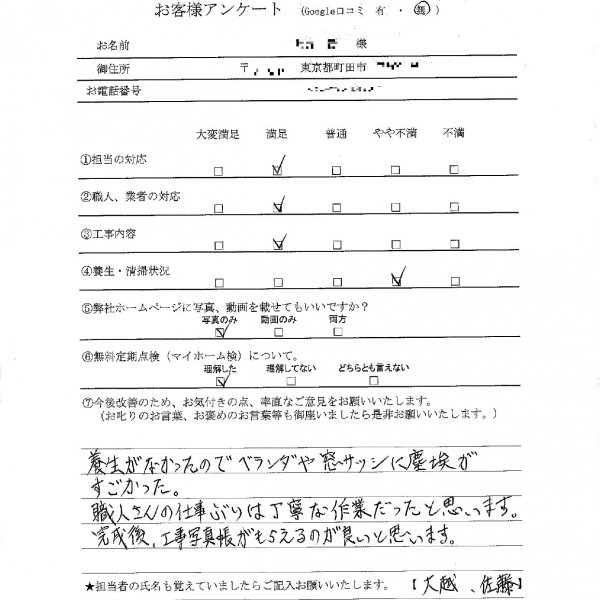 お客様アンケート (Google口コミ 有 ・ 無 )
お名前 様
御住所 〒 東京都町田市
お電話番号
大変満足 満足 普通 やや不満 不満
①担当の対応
②職人、業者の対応
③工事内容
④養生・清掃状況
⑤弊社ホームページに写真、動画を載せてもいいですか？
写真のみ 動画のみ 両方
⑥無料定期点検（マイホーム検）について。
理解した 理解してない どちらとも言えない
⑦今後改善のため、お気付きの点、率直なご意見をお願いいたします。
（お叱りのお言葉、お褒めのお言葉等も御座いましたら是非お願いいたします。）
養生がなかったのでベランダや窓サッシに塵埃が
すごかった。
職人さんの仕事ぶりは丁寧な作業だったと思います。
完成後、工事写真帳がもらえるのが良いと思います。
★担当者の氏名も覚えていましたらご記入お願いいたします。 【大越、佐藤】